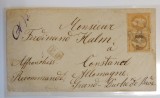 Monsieur
Ferdinand Halm
à
Affranchie Constance
Recommandée Allemagne
Grand Duché de Bade